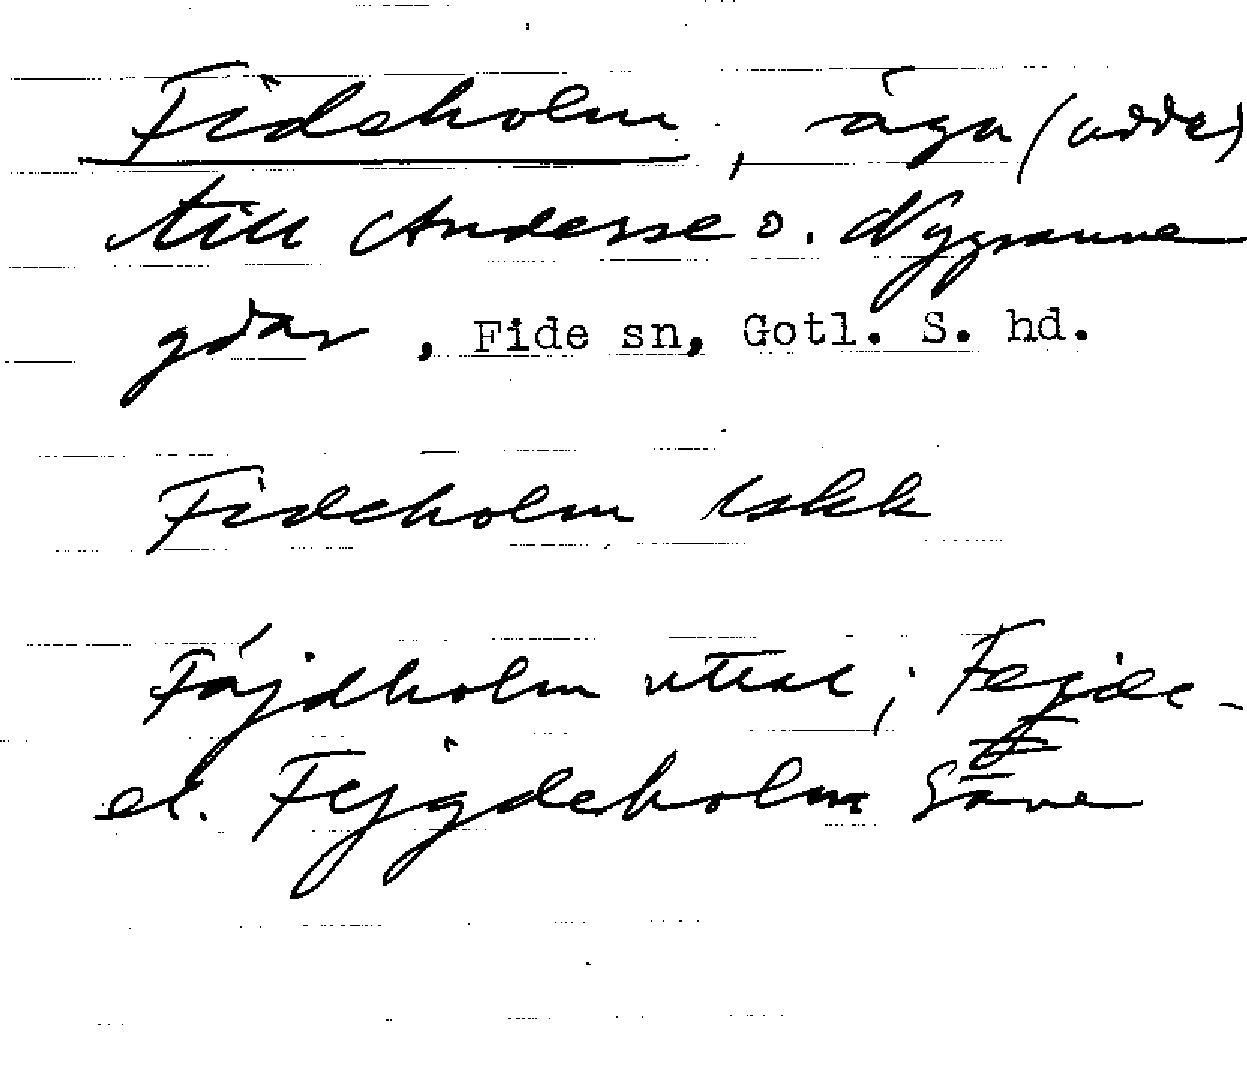 Fideholm, äga (udde)
till Andersse o. Nygranne
gdar, Fide sn, Gotl. S. hd.
Fideholm Iskk
Fäjdholm uttal; Fejde-
el. Fejgdeholm Säve